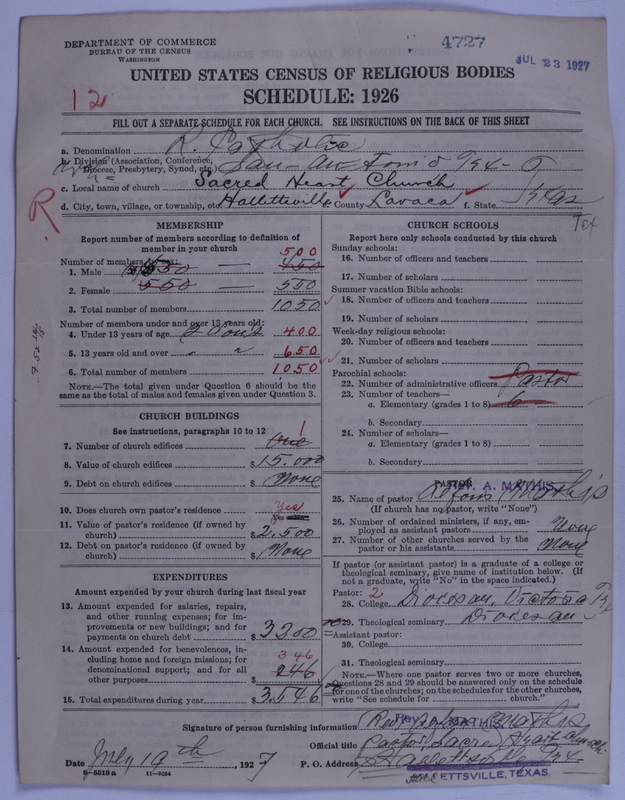 DEPARTMENT OF COMMERCE
BUREAU OF THE CENSUS
WASHINGTON
4727
JUL 23 1927
UNITED STATES CENSUS OF RELIGIOUS BODIES
12
SCHEDULE: 1926
FILL OUT A SEPARATE SCHEDULE FOR EACH CHURCH. SEE INSTRUCTIONS ON THE BACK OF THIS SHEET
a. Denomination R. Catholic
b. Division (Association, Conference, Diocese, Presbytery, Synod, etc.) San Antonio Tex
c. Local name of church Sacred Heart Church
d. City, town, village, or township, etc. Hallettsville e. County Lavaca f. State Texas
R
Tex
MEMBERSHIP
Report number of members according to definition of member in your church
Number of members by sex:
500
1. Male 550 — 450
2. Female 550 — 550
3. Total number of members 1050
Number of members under and over 13 years old:
4. Under 13 years of age about 400
5. 13 years old and over " " 650
6. Total number of members 1050
NOTE.—The total given under Question 6 should be the same as the total of males and females given under Question 3.
CHURCH BUILDINGS
See instructions, paragraphs 10 to 12
7. Number of church edifices One 1
8. Value of church edifices $15.000
9. Debt on church edifices $ None
10. Does church own pastor's residence? Yes
11. Value of pastor's residence (if owned by church) $2.500
12. Debt on pastor's residence (if owned by church) $ None
EXPENDITURES
Amount expended by your church during last fiscal year
13. Amount expended for salaries, repairs, and other running expenses; for improvements or new buildings; and for payments on church debt $3200
14. Amount expended for benevolences, including home and foreign missions; for denominational support; and for all other purposes $ 246
346
15. Total expenditures during year $3.546
CHURCH SCHOOLS
Report here only schools conducted by this church
Sunday schools:
16. Number of officers and teachers
17. Number of scholars
Summer vacation Bible schools:
18. Number of officers and teachers
19. Number of scholars
Week-day religious schools:
20. Number of officers and teachers
21. Number of scholars
Parochial schools:
22. Number of administrative officers Pastor
23. Number of teachers—
a. Elementary (grades 1 to 8) 6
b. Secondary
24. Number of scholars—
a. Elementary (grades 1 to 8)
b. Secondary
PASTOR
REV. A. MATHIS
25. Name of pastor Alfons Mathis
(If church has no pastor, write "None")
26. Number of ordained ministers, if any, employed as assistant pastors None
27. Number of other churches served by the pastor or his assistants None
If pastor (or assistant pastor) is a graduate of a college or theological seminary, give name of institution below. (If not a graduate, write "No" in the space indicated.)
Pastor: 2
28. College Diocesan, Victoria Tx
29. Theological seminary Diocesan
Assistant pastor:
30. College
31. Theological seminary
NOTE.—Where one pastor serves two or more churches, Questions 28 and 29 should be answered only on the schedule for one of the churches; on the schedules for the other churches, write "See schedule for church."
Signature of person furnishing information Rev. Alfons Mathis
REV. A. MATHIS
Official title Pastor Sacred Heart Church
Date July 19th, 1927 P. O. Address Hallettsville Tex
HALLETTSVILLE, TEXAS.
8—5518a 11—9554